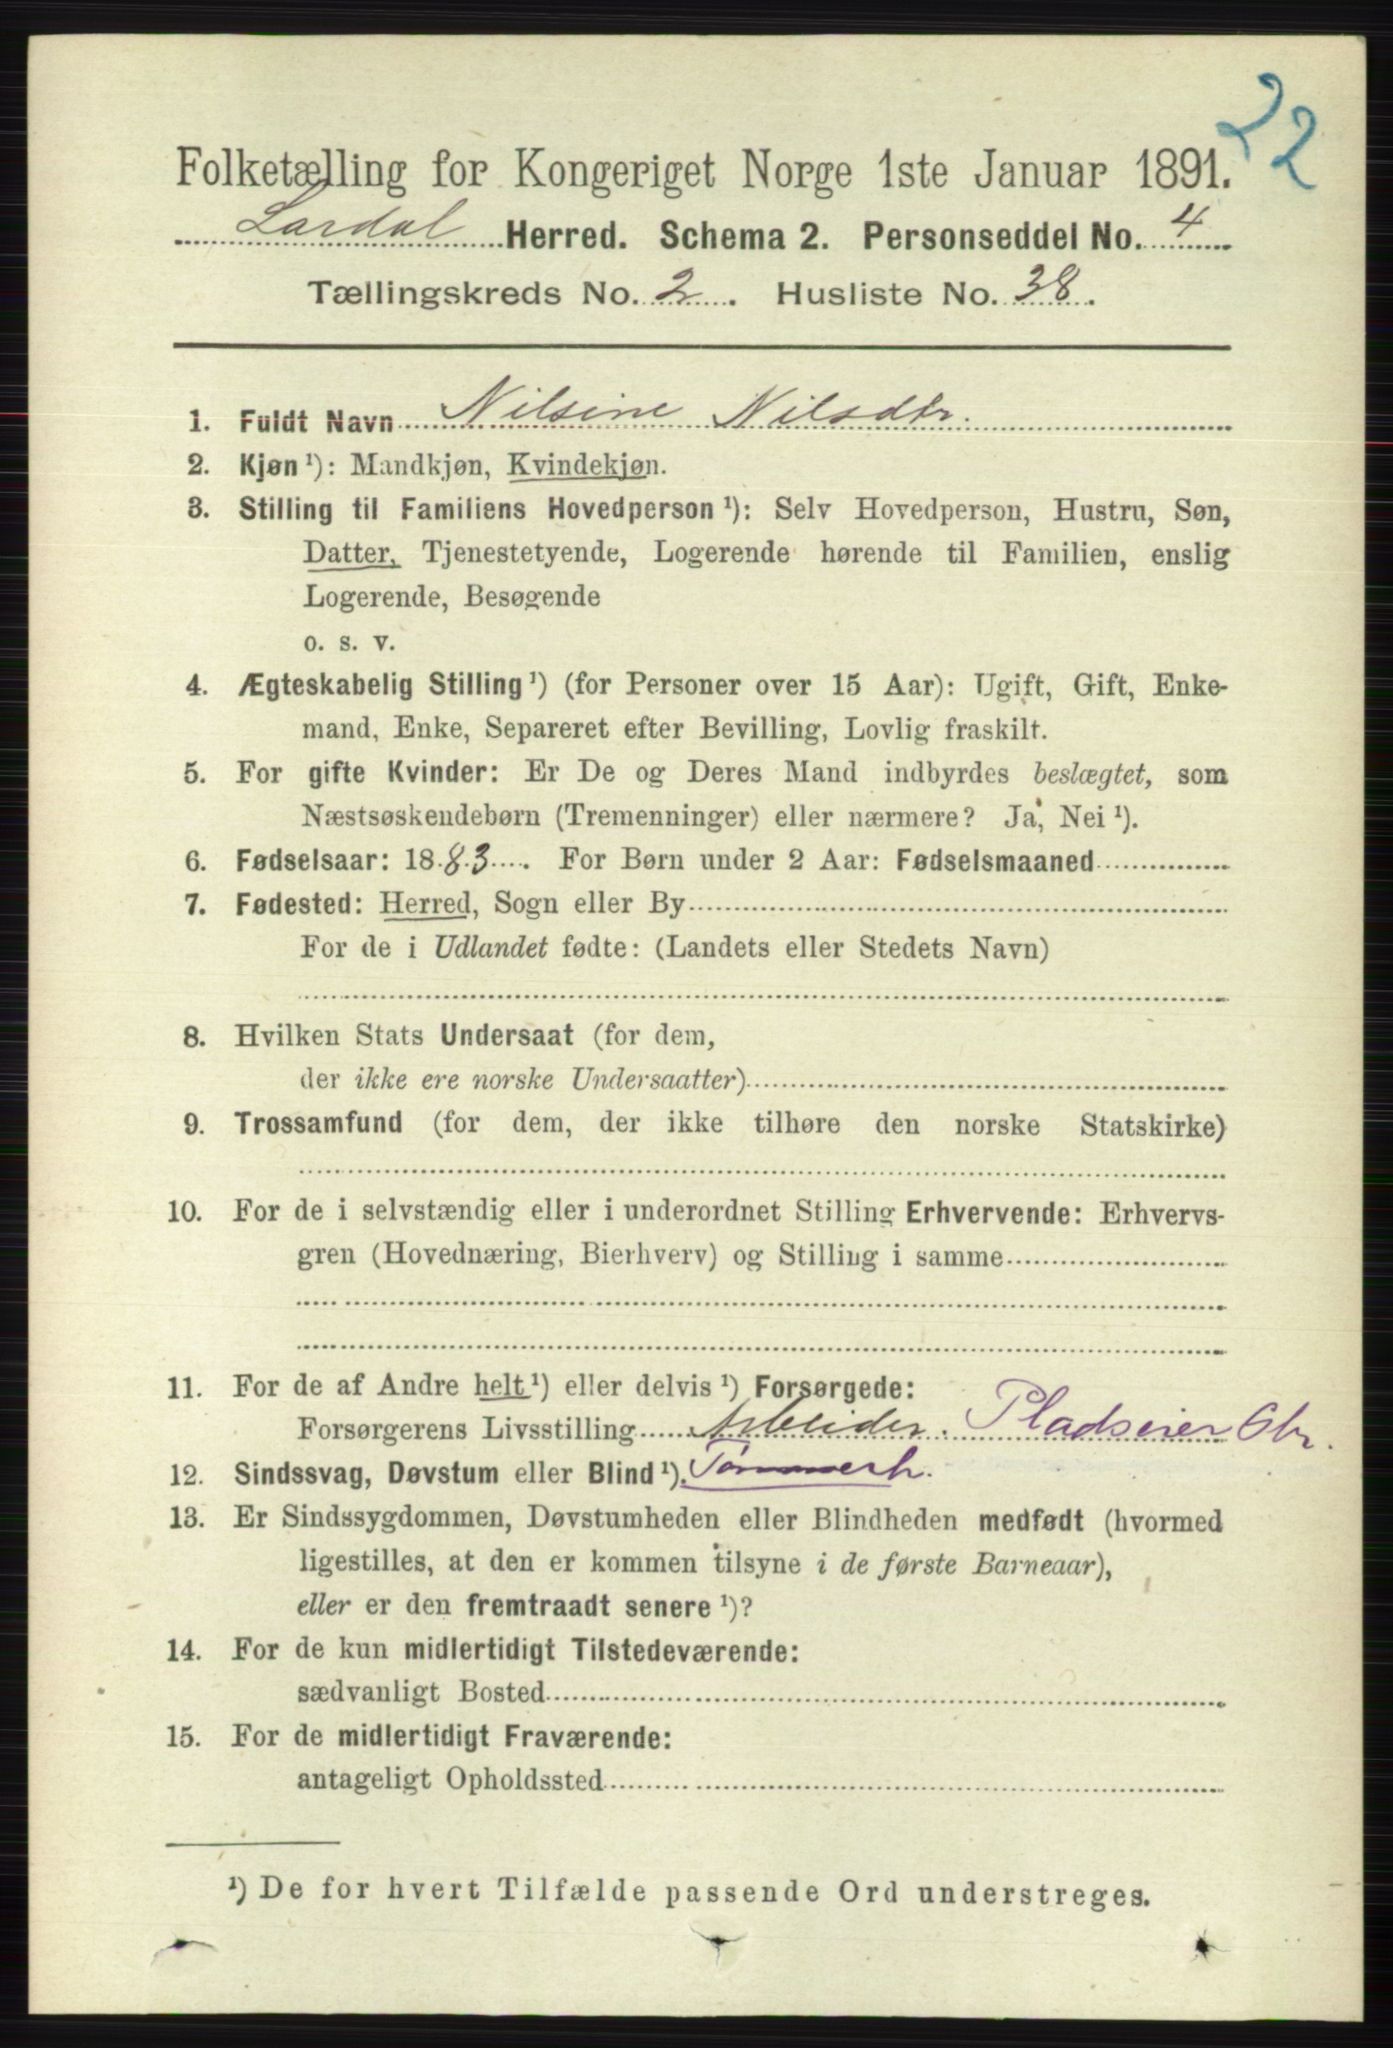 22
Folketælling for Kongeriget Norge 1ste Januar 1891.
Lardal Herred. Schema 2. Personseddel No. 4
Tællingskreds No. 2. Husliste No. 38.
1. Fuldt Navn Nilsine Nilsdtr.
2. Kjøn ¹): Mandkjøn, Kvindekjøn.
3. Stilling til Familiens Hovedperson ¹): Selv Hovedperson, Hustru, Søn,
Datter, Tjenestetyende, Logerende hørende til Familien, enslig
Logerende, Besøgende
o. s. v.
4. Ægteskabelig Stilling ¹) (for Personer over 15 Aar): Ugift, Gift, Enke-
mand, Enke, Separeret efter Bevilling, Lovlig fraskilt.
5. For gifte Kvinder: Er De og Deres Mand indbyrdes beslægtet, som
Næstsøskendebørn (Tremenninger) eller nærmere? Ja, Nei ¹).
6. Fødselsaar: 1883. For Børn under 2 Aar: Fødselsmaaned
7. Fødested: Herred, Sogn eller By
For de i Udlandet fødte: (Landets eller Stedets Navn)
8. Hvilken Stats Undersaat (for dem,
der ikke ere norske Undersaatter)
9. Trossamfund (for dem, der ikke tilhøre den norske Statskirke)
10. For de i selvstændig eller i underordnet Stilling Erhvervende: Erhvervs-
gren (Hovednæring, Bierhverv) og Stilling i samme
11. For de af Andre helt ¹) eller delvis ¹) Forsørgede:
Forsørgerens Livsstilling Arbeider. Pladseier Gbr.
12. Sindssvag, Døvstum eller Blind ¹). Tømmerh.
13. Er Sindssygdommen, Døvstumheden eller Blindheden medfødt (hvormed
ligestilles, at den er kommen tilsyne i de første Barneaar),
eller er den fremtraadt senere ¹)?
14. For de kun midlertidigt Tilstedeværende:
sædvanligt Bosted
15. For de midlertidigt Fraværende:
antageligt Opholdssted
¹) De for hvert Tilfælde passende Ord understreges.